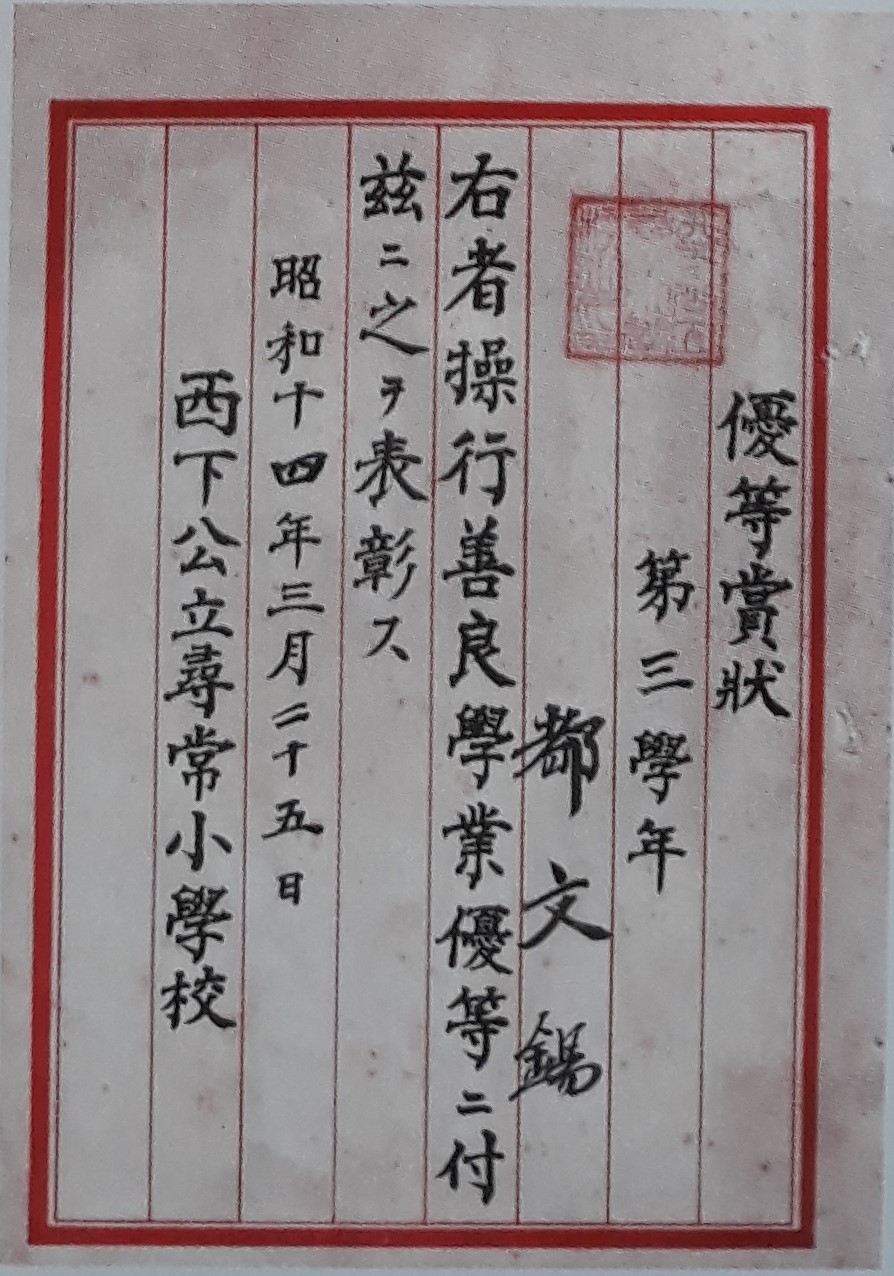 優等賞狀
第三學年
都文錫
右者操行善良學業優等ニ付
茲ニ之ヲ表彰ス
昭和十四年三月二十五日
西下公立尋常小學校